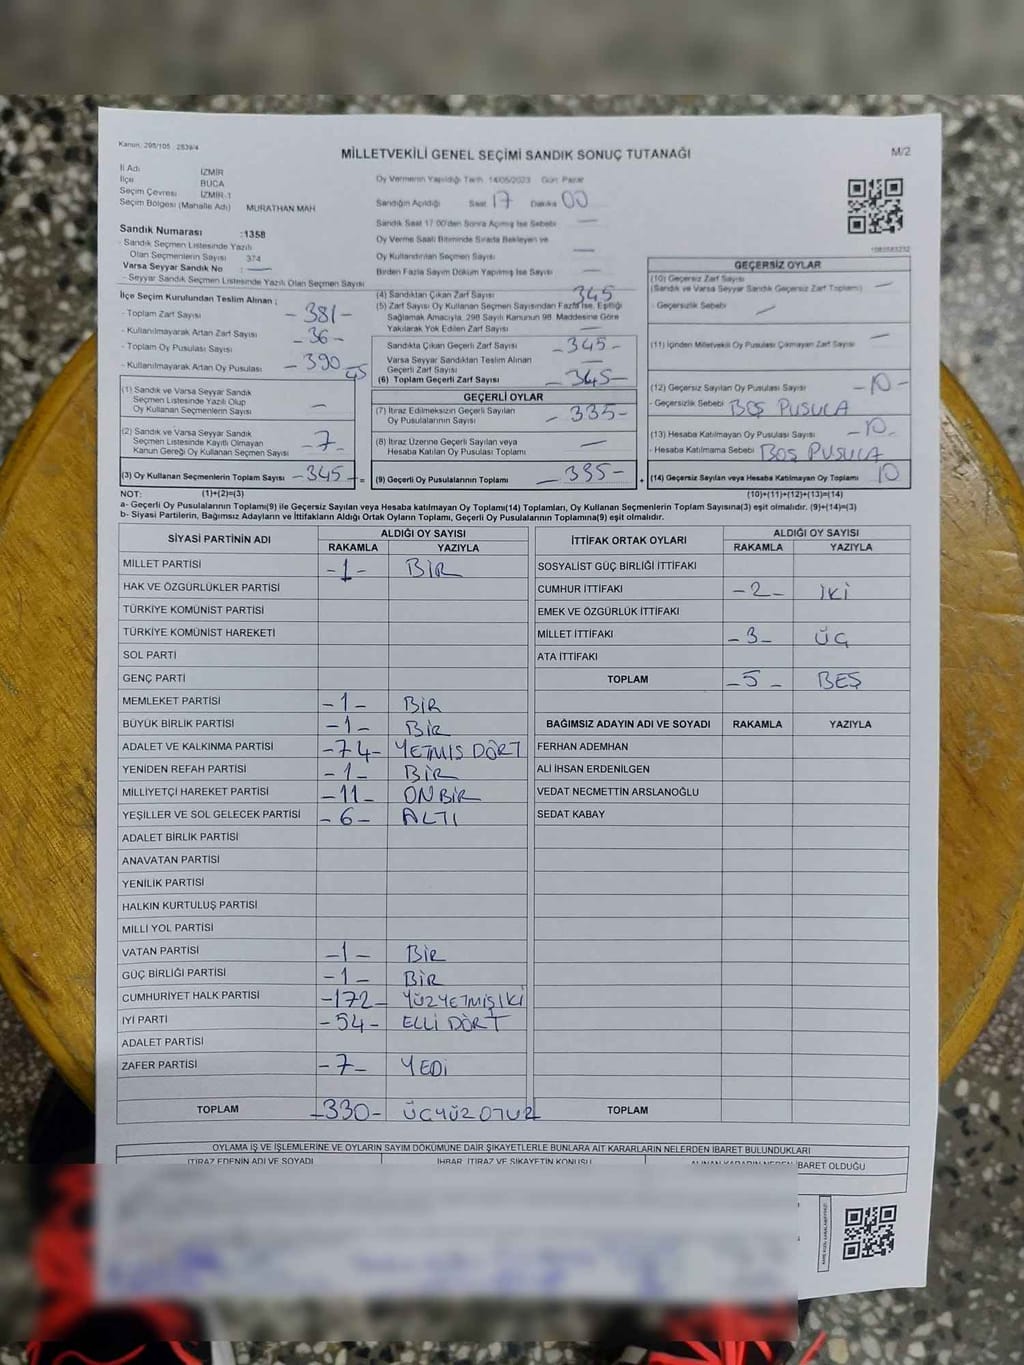 Kanun: 298/105 2839/4
MİLLETVEKİLİ GENEL SEÇİMİ SANDIK SONUÇ TUTANAĞI
M/2
İl Adı İZMİR
İlçe BUCA
Seçim Çevresi İZMİR-1
Seçim Bölgesi (Mahalle Adı) MURATHAN MAH
Oy Vermenin Yapıldığı Tarih: 14/05/2023 Gün: Pazar
Sandığın Açıldığı Saat 17 Dakika 00
Sandık Saat 17.00'den Sonra Açılmış İse Sebebi —
Oy Verme Saati Bitiminde Sırada Bekleyen ve
Oy Kullandırılan Seçmen Sayısı —
Birden Fazla Sayım Döküm Yapılmış İse Sayısı —
Sandık Numarası :1358
- Sandık Seçmen Listesinde Yazılı
Olan Seçmenlerin Sayısı 374
Varsa Seyyar Sandık No : —
- Seyyar Sandık Listesinde Yazılı Olan Seçmen Sayısı
İlçe Seçim Kurulundan Teslim Alınan ;
- Toplam Zarf Sayısı - 381-
- Kullanılmayarak Artan Zarf Sayısı -36-
- Toplam Oy Pusulası Sayısı - 390
- Kullanılmayarak Artan Oy Pusulası 45
(1) Sandık ve Varsa Seyyar Sandık
Seçmen Listesinde Yazılı Olup
Oy Kullanan Seçmenlerin Sayısı —
(2) Sandık ve Varsa Seyyar Sandık
Seçmen Listesinde Kayıtlı Olmayan
Kanun Gereği Oy Kullanan Seçmen Sayısı -7-
(3) Oy Kullanan Seçmenlerin Toplam Sayısı -345-
=
(4) Sandıktan Çıkan Zarf Sayısı 345
(5) Zarf Sayısı Oy Kullanan Seçmen Sayısından Fazla İse, Eşitliği
Sağlamak Amacıyla, 298 Sayılı Kanunun 98. Maddesine Göre
Yakılarak Yok Edilen Zarf Sayısı —
Sandıkta Çıkan Geçerli Zarf Sayısı -345-
Varsa Seyyar Sandıktan Teslim Alınan
Geçerli Zarf Sayısı —
(6) Toplam Geçerli Zarf Sayısı -345-
GEÇERLİ OYLAR
(7) İtiraz Edilmeksizin Geçerli Sayılan
Oy Pusulalarının Sayısı - 335-
(8) İtiraz Üzerine Geçerli Sayılan veya
Hesaba Katılan Oy Pusulası Toplamı —
(9) Geçerli Oy Pusulalarının Toplamı - 335-
+
GEÇERSİZ OYLAR
(10) Geçersiz Zarf Sayısı
(Sandık ve Varsa Seyyar Sandık Geçersiz Zarf Toplamı) —
- Geçersizlik Sebebi —
(11) İçinden Milletvekili Oy Pusulası Çıkmayan Zarf Sayısı —
(12) Geçersiz Sayılan Oy Pusulası Sayısı -10-
- Geçersizlik Sebebi BOŞ PUSULA
(13) Hesaba Katılmayan Oy Pusulası Sayısı -10-
- Hesaba Katılmama Sebebi BOŞ PUSULA
(14) Geçersiz Sayılan veya Hesaba Katılmayan Oy Toplamı 10
NOT: (1)+(2)=(3) (10)+(11)+(12)+(13)=(14)
a- Geçerli Oy Pusulalarının Toplamı(9) ile Geçersiz Sayılan veya Hesaba katılmayan Oy Toplamı(14) Toplamları, Oy Kullanan Seçmenlerin Toplam Sayısına(3) eşit olmalıdır. (9)+(14)=(3)
b- Siyasi Partilerin, Bağımsız Adayların ve İttifakların Aldığı Ortak Oyların Toplamı, Geçerli Oy Pusulalarının Toplamına(9) eşit olmalıdır.
SİYASİ PARTİNİN ADI ALDIĞI OY SAYISI
RAKAMLA YAZIYLA
MİLLET PARTİSİ -1- BİR
HAK VE ÖZGÜRLÜKLER PARTİSİ
TÜRKİYE KOMÜNİST PARTİSİ
TÜRKİYE KOMÜNİST HAREKETİ
SOL PARTİ
GENÇ PARTİ
MEMLEKET PARTİSİ -1- BİR
BÜYÜK BİRLİK PARTİSİ -1- BİR
ADALET VE KALKINMA PARTİSİ -74- YETMIS DÖRT
YENİDEN REFAH PARTİSİ -1- BİR
MİLLİYETÇİ HAREKET PARTİSİ -11- ONBİR
YEŞİLLER VE SOL GELECEK PARTİSİ -6- ALTI
ADALET BİRLİK PARTİSİ
ANAVATAN PARTİSİ
YENİLİK PARTİSİ
HALKIN KURTULUŞ PARTİSİ
MİLLİ YOL PARTİSİ
VATAN PARTİSİ -1- BİR
GÜÇ BİRLİĞİ PARTİSİ -1- BİR
CUMHURİYET HALK PARTİSİ -172- YÜZYETMİŞİKİ
İYİ PARTİ -54- ELLİ DÖRT
ADALET PARTİSİ
ZAFER PARTİSİ -7- YEDİ
TOPLAM -330- ÜÇYÜZ OTUZ
İTTİFAK ORTAK OYLARI ALDIĞI OY SAYISI
RAKAMLA YAZIYLA
SOSYALİST GÜÇ BİRLİĞİ İTTİFAKI
CUMHUR İTTİFAKI -2- İKİ
EMEK VE ÖZGÜRLÜK İTTİFAKI
MİLLET İTTİFAKI -3- ÜÇ
ATA İTTİFAKI
TOPLAM -5- BEŞ
BAĞIMSIZ ADAYIN ADI VE SOYADI RAKAMLA YAZIYLA
FERHAN ADEMHAN
ALİ İHSAN ERDENİLGEN
VEDAT NECMETTİN ARSLANOĞLU
SEDAT KABAY
TOPLAM
OYLAMA İŞ VE İŞLEMLERİNE VE OYLARIN SAYIM DÖKÜMÜNE DAİR ŞİKAYETLERLE BUNLARA AİT KARARLARIN NELERDEN İBARET BULUNDUKLARI
İTİRAZ EDENİN ADI VE SOYADI İHBAR, İTİRAZ VE ŞİKAYETİN KONUSU ALINAN KARARIN NEDEN İBARET OLDUĞU